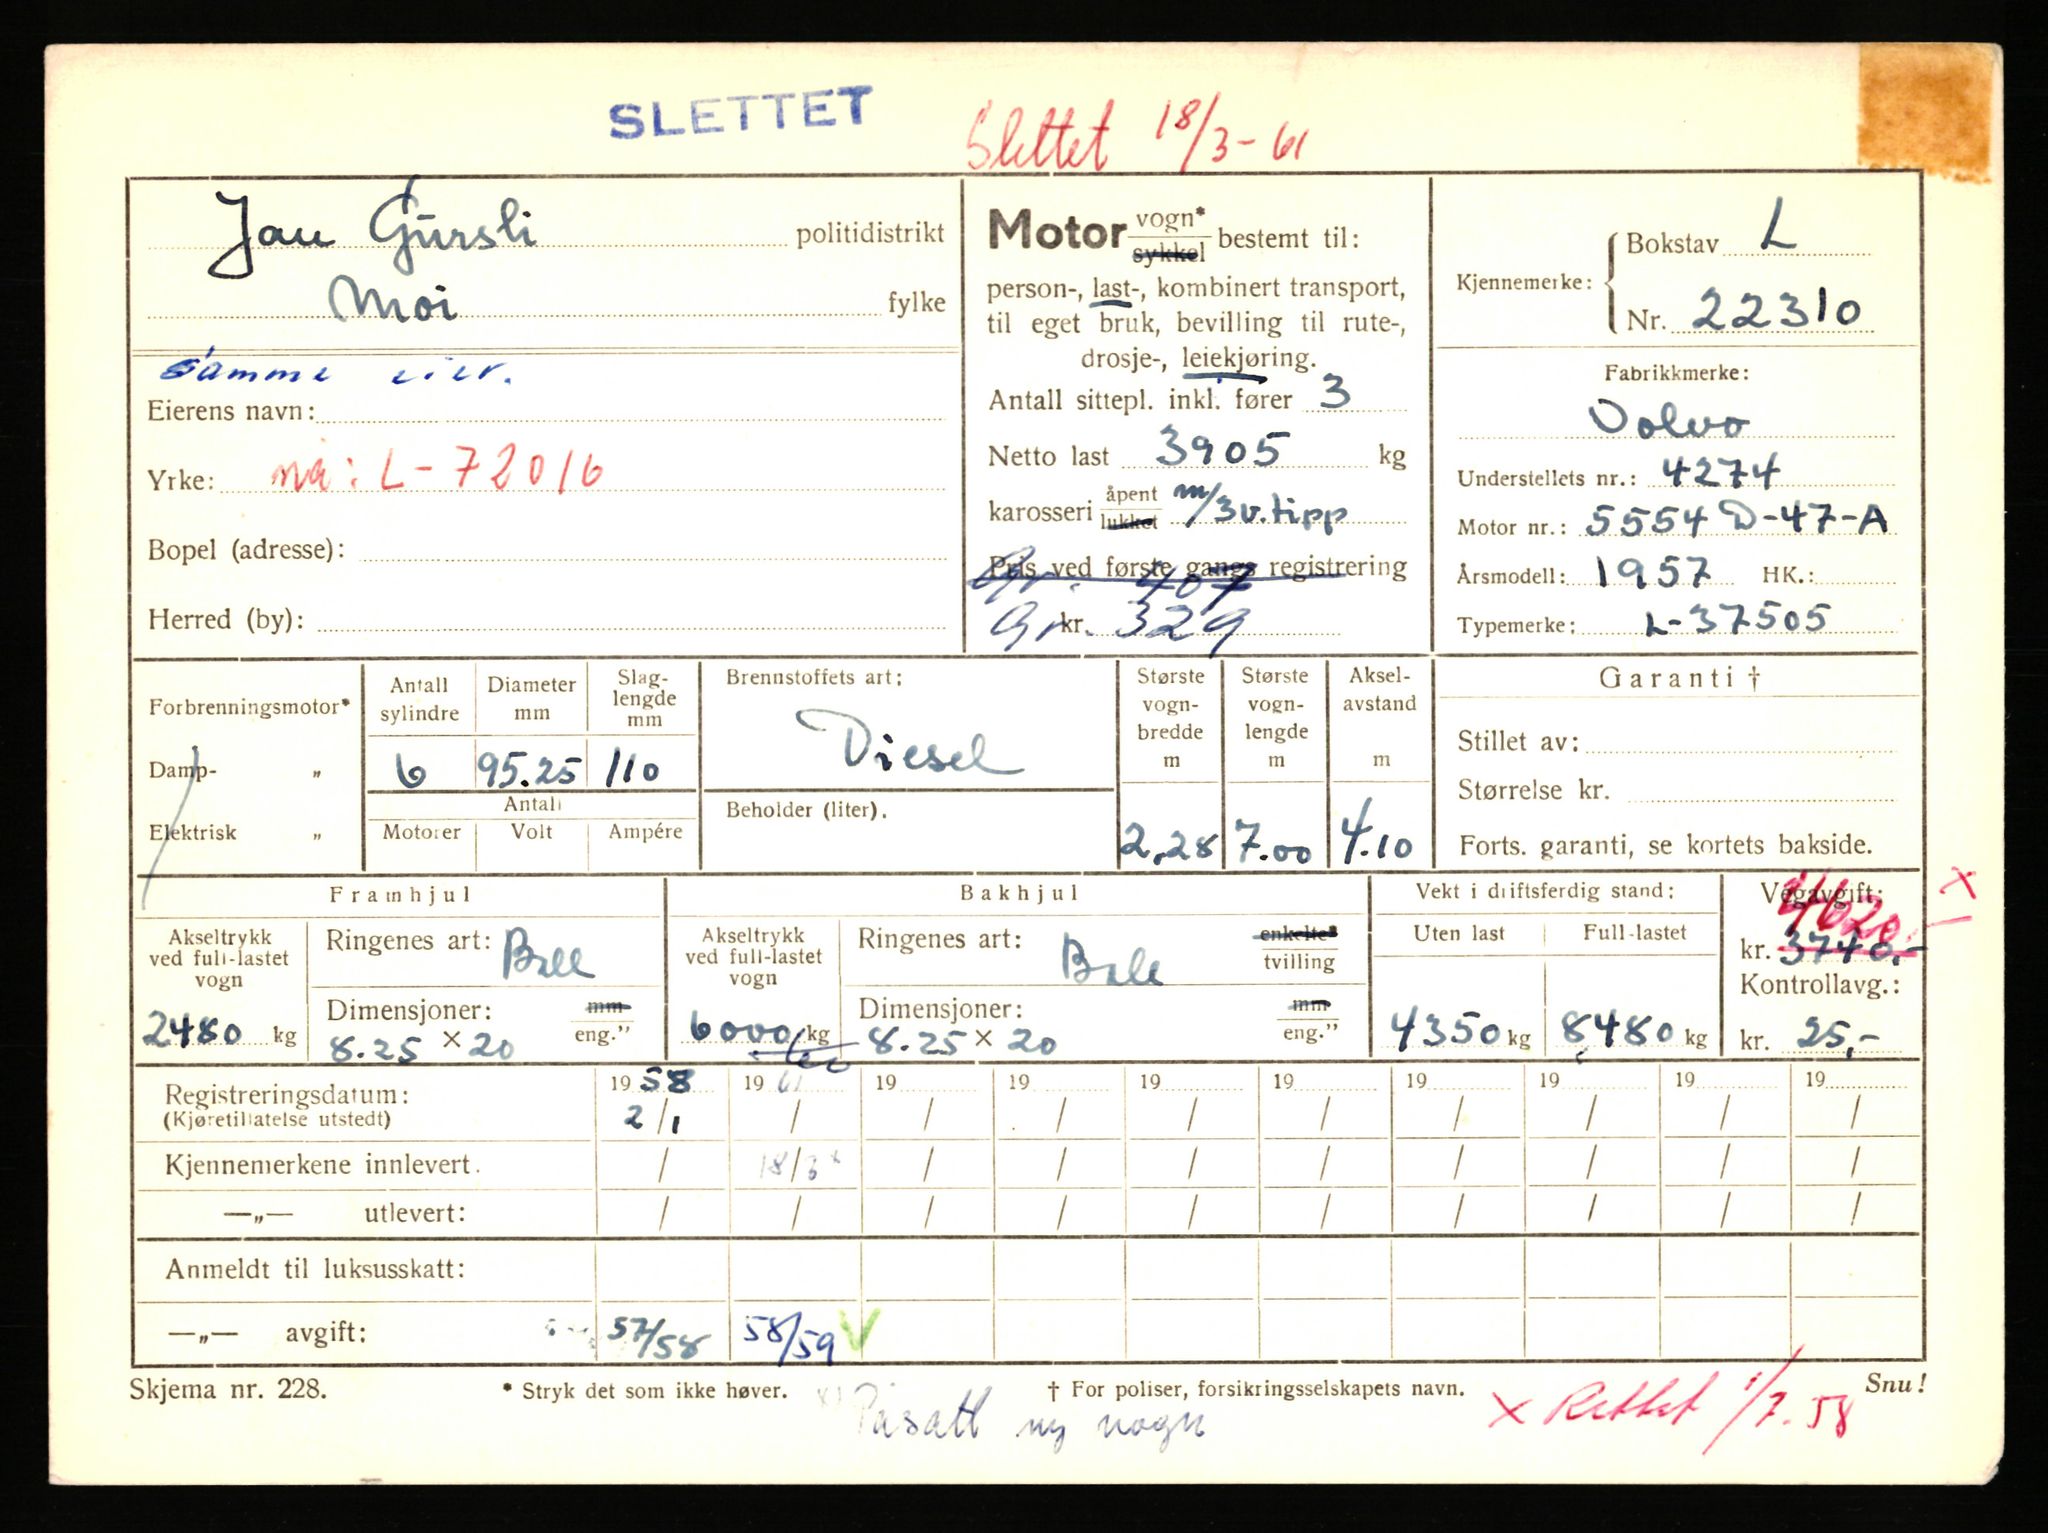 SLETTET
Slettet 18/3-61
Jan Gursli politidistrikt
Moi fylke
samme eier.
Eierens navn:
Yrke: nå: L-72016
Bopel (adresse):
Herred (by):
Motor vogn* / sykkel bestemt til:
person-, last-, kombinert transport,
til eget bruk, bevilling til rute-,
drosje-, leiekjøring.
Antall sittepl. inkl. fører 3
Netto last 3905 kg
karosseri åpent / lukket m/3v.tipp
Pris ved første gangs registrering
Gr. 407
Gr. kr. 329
Kjennemerke: Bokstav L
Nr. 22310
Fabrikkmerke:
Volvo
Understellets nr.: 4274
Motor nr.: 5554 D-47-A
Årsmodell: 1957 HK.:
Typemerke: L-37505
Forbrenningsmotor*
Damp- „
Elektrisk „
Antall sylindre
6
Diameter mm
95.25
Slag-lengde mm
110
Antall
Motorer Volt Ampére
Brennstoffets art:
Diesel
Beholder (liter).
Største vogn-bredde m
2,28
Største vogn-lengde m
7.00
Aksel-avstand m
4.10
Garanti †
Stillet av:
Størrelse kr.
Forts. garanti, se kortets bakside.
Framhjul
Akseltrykk ved full-lastet vogn
2480 kg
Ringenes art: Ball
Dimensjoner: mm / eng."
8.25 × 20
Bakhjul
Akseltrykk ved full-lastet vogn
6000 kg
Ringenes art: Ball enkelte* / tvilling
Dimensjoner: mm / eng."
8.25 × 20
Vekt i driftsferdig stand:
Uten last Full-lastet
4350 kg 8480 kg
Vegavgift: x
4620.-
kr. 3740,-
Kontrollavg.:
kr. 25,-
Registreringsdatum: 19 58 19 61 19 19 19 19 19 19 19 19
(Kjøretillatelse utstedt) 2/1 / / / / / / / / /
Kjennemerkene innlevert. / 18/3 x / / / / / / / /
—„— utlevert: / / / / / / / / / /
Anmeldt til luksusskatt:
—„— avgift: 57/58 58/59 V
Skjema nr. 228. * Stryk det som ikke høver. † For poliser, forsikringsselskapets navn. Snu!
x) Påsatt ny vogn
x Rettet 1/7.58